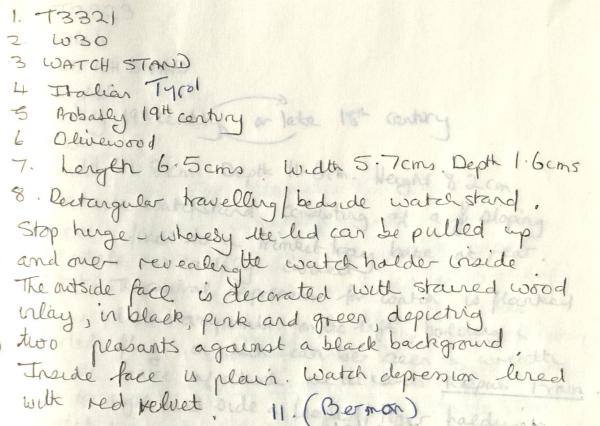 1. T3321
2 W30
3 WATCH STAND
4 Italian Tyrol
5 Probably 19th century
6 Olivewood
7. Length 6.5cms. Width 5.7cms. Depth 1.6cms
8. Rectangular travelling/bedside watch stand.
Stop hinge - whereby the lid can be pulled up
and over revealing the watch holder inside
The outside face is decorated with stained wood
inlay, in black, pink and green, depicting
two peasants against a black background
Inside face is plain. Watch depression lined
with red velvet. 11. (Berman)